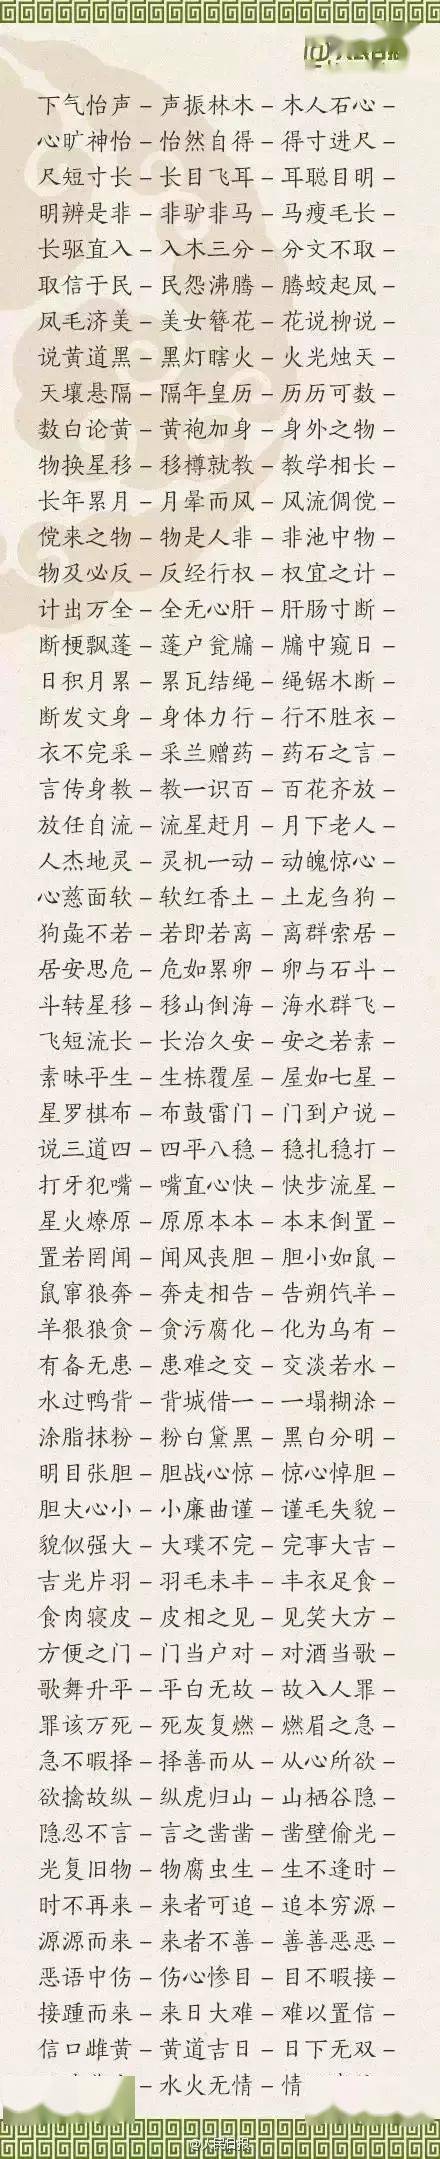 下气怡声 – 声振林木 – 木人石心 –
心旷神怡 – 怡然自得 – 得寸进尺 –
尺短寸长 – 长目飞耳 – 耳聪目明 –
明辨是非 – 非驴非马 – 马瘦毛长 –
长驱直入 – 入木三分 – 分文不取 –
取信于民 – 民怨沸腾 – 腾蛟起凤 –
凤毛济美 – 美女簪花 – 花说柳说 –
说黄道黑 – 黑灯瞎火 – 火光烛天 –
天壤悬隔 – 隔年皇历 – 历历可数 –
数白论黄 – 黄袍加身 – 身外之物 –
物换星移 – 移樽就教 – 教学相长 –
长年累月 – 月晕而风 – 风流倜傥 –
傥来之物 – 物是人非 – 非池中物 –
物及必反 – 反经行权 – 权宜之计 –
计出万全 – 全无心肝 – 肝肠寸断 –
断梗飘蓬 – 蓬户瓮牖 – 牖中窥日 –
日积月累 – 累瓦结绳 – 绳锯木断 –
断发文身 – 身体力行 – 行不胜衣 –
衣不完采 – 采兰赠药 – 药石之言 –
言传身教 – 教一识百 – 百花齐放 –
放任自流 – 流星赶月 – 月下老人 –
人杰地灵 – 灵机一动 – 动魄惊心 –
心慈面软 – 软红香土 – 土龙刍狗 –
狗彘不若 – 若即若离 – 离群索居 –
居安思危 – 危如累卵 – 卵与石斗 –
斗转星移 – 移山倒海 – 海水群飞 –
飞短流长 – 长治久安 – 安之若素 –
素昧平生 – 生栋覆屋 – 屋如七星 –
星罗棋布 – 布鼓雷门 – 门到户说 –
说三道四 – 四平八稳 – 稳扎稳打 –
打牙犯嘴 – 嘴直心快 – 快步流星 –
星火燎原 – 原原本本 – 本末倒置 –
置若罔闻 – 闻风丧胆 – 胆小如鼠 –
鼠窜狼奔 – 奔走相告 – 告朔饩羊 –
羊狠狼贪 – 贪污腐化 – 化为乌有 –
有备无患 – 患难之交 – 交淡若水 –
水过鸭背 – 背城借一 – 一塌糊涂 –
涂脂抹粉 – 粉白黛黑 – 黑白分明 –
明目张胆 – 胆战心惊 – 惊心悼胆 –
胆大心小 – 小廉曲谨 – 谨毛失貌 –
貌似强大 – 大璞不完 – 完事大吉 –
吉光片羽 – 羽毛未丰 – 丰衣足食 –
食肉寝皮 – 皮相之见 – 见笑大方 –
方便之门 – 门当户对 – 对酒当歌 –
歌舞升平 – 平白无故 – 故入人罪 –
罪该万死 – 死灰复燃 – 燃眉之急 –
急不暇择 – 择善而从 – 从心所欲 –
欲擒故纵 – 纵虎归山 – 山栖谷隐 –
隐忍不言 – 言之凿凿 – 凿壁偷光 –
光复旧物 – 物腐虫生 – 生不逢时 –
时不再来 – 来者可追 – 追本穷源 –
源源而来 – 来者不善 – 善善恶恶 –
恶语中伤 – 伤心惨目 – 目不暇接 –
接踵而来 – 来日大难 – 难以置信 –
信口雌黄 – 黄道吉日 – 日下无双 –
– 水火无情 – 情
@人民日报